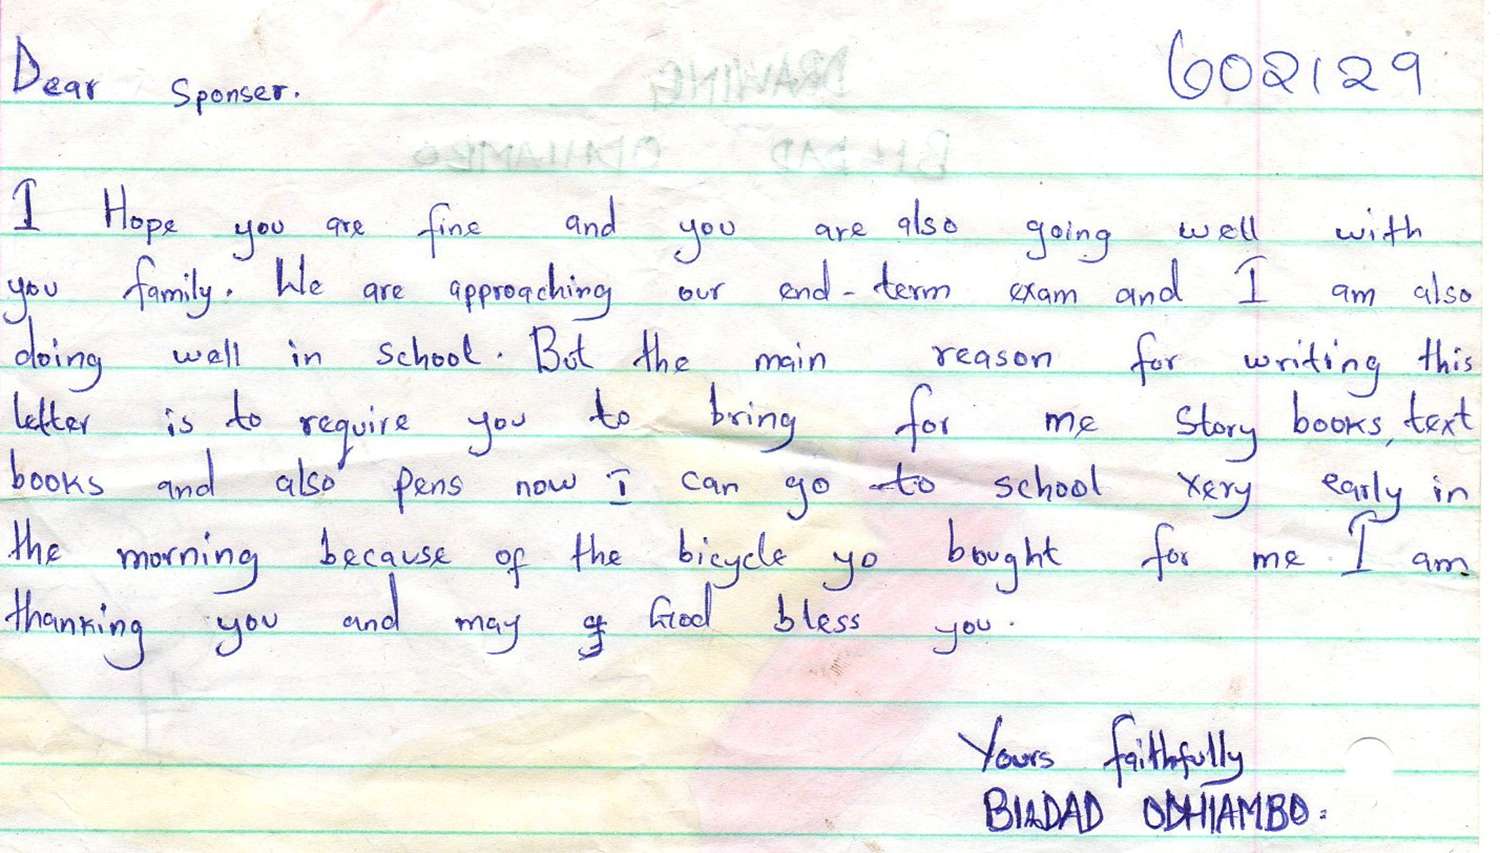 Dear Sponser. 602129
DRAWING
BILDAD ODHIAMBO
I Hope you are fine and you are also going well with
you family. We are approaching our end-term exam and I am also
doing well in school. But the main reason for writing this
letter is to require you to bring for me story books, text
books and also pens now I can go to school very early in
the morning because of the bicycle yo bought for me. I am
thanking you and may g God bless you.
Yours faithfully
BILDAD ODHIAMBO.